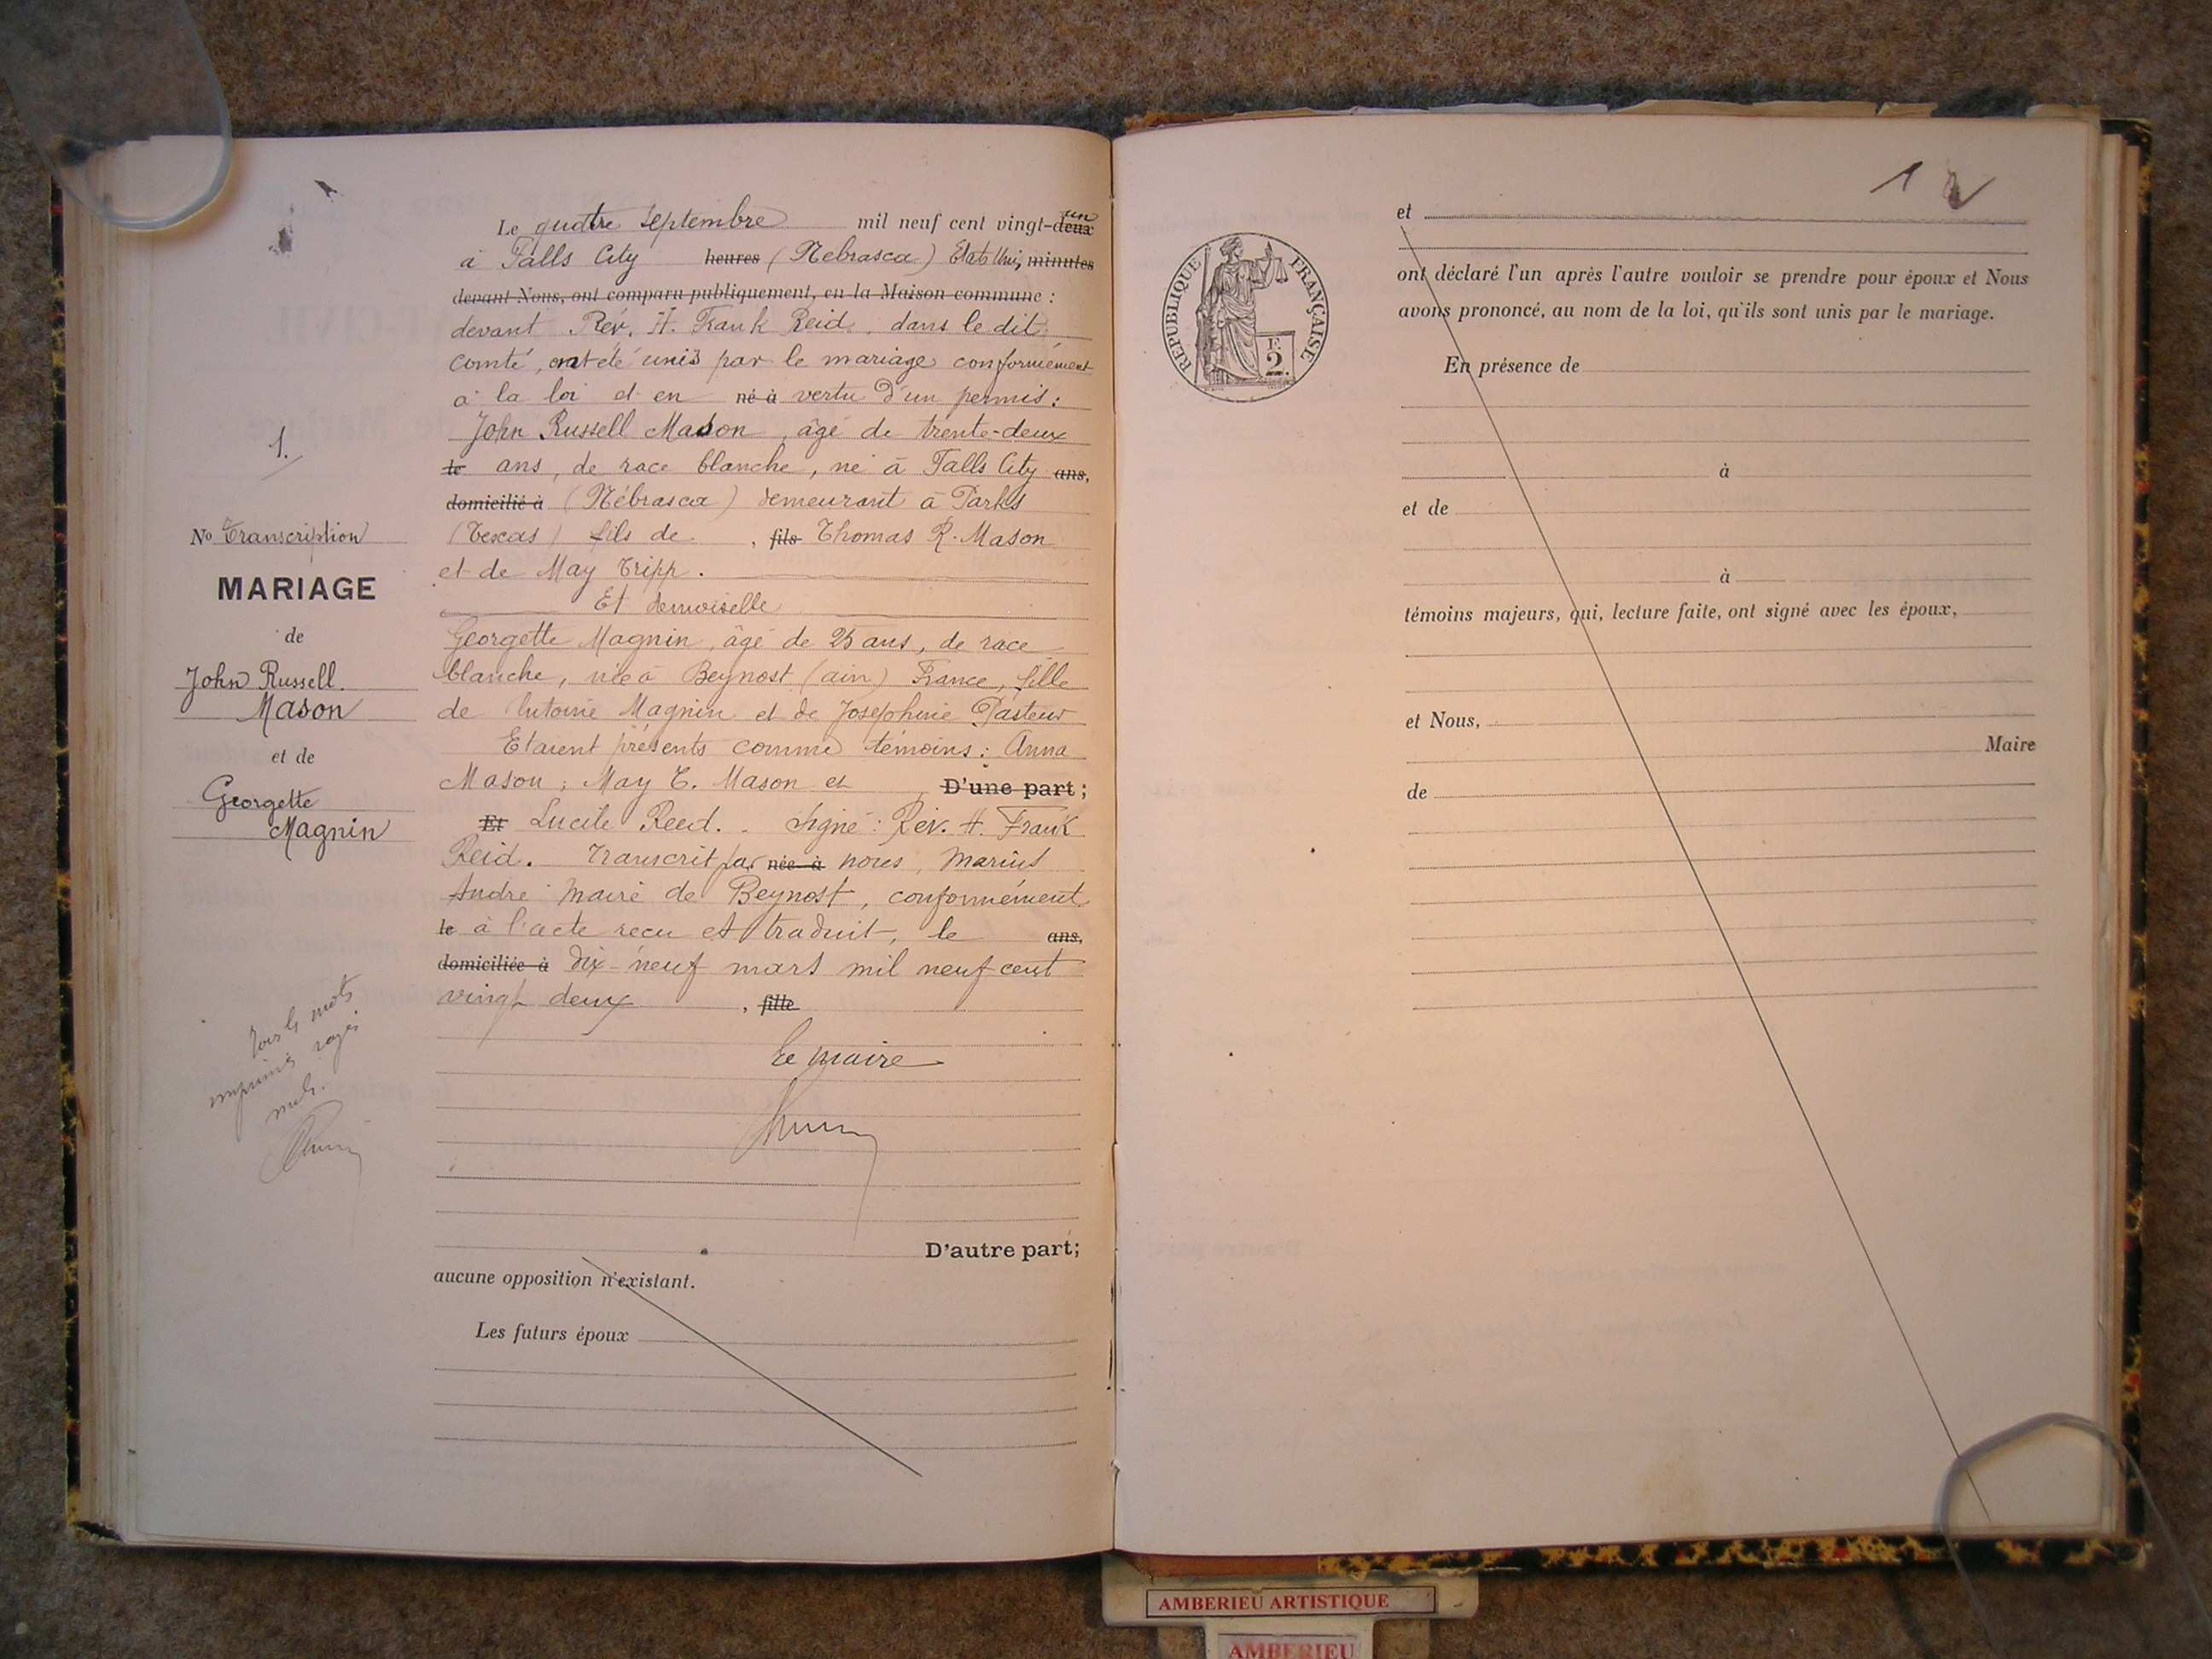 1.
No Transcription
MARIAGE
de
John Russell
Mason
et de
Georgette
Magnin
Tous les mots
imprimés rayés
nuls.
Le quatre septembre mil neuf cent vingt-deux un
à Falls City heures (Nebrasca) Etats Unis, minutes
devant Nous, ont comparu publiquement, en la Maison commune :
devant Rév. H. Frank Reid, dans le dit
comté, ont été unis par le mariage conformément
à la loi et en né à vertu d'un permis :
John Russell Mason, âgé de trente-deux
le ans, de race blanche, né à Falls City ans,
domicilié à (Nébrasca) demeurant à Parks
(Texas) fils de , fils Thomas R. Mason
et de May Tripp.
Et demoiselle
Georgette Magnin, âgé de 25 ans, de race
blanche, née à Beynost (ain) France, fille
de Antoine Magnin et de Joséphine Pasteur
Etaient présents comme témoins : Anna
Mason ; May T. Mason et D'une part ;
Et Lucile Reed. - Signé : Rév. H. Frank
Reid. Transcrit par née à nous, Marius
André maire de Beynost, conformément
le à l'acte recu et traduit, le ans,
domiciliée à dix-neuf mars mil neuf cent
vingt deux , fille
Le maire
D'autre part;
aucune opposition n'existant.
Les futurs époux
1 2
et
RÉPUBLIQUE FRANÇAISE
F.
2
ont déclaré l'un après l'autre vouloir se prendre pour époux et Nous
avons prononcé, au nom de la loi, qu'ils sont unis par le mariage.
En présence de
à
et de
à
témoins majeurs, qui, lecture faite, ont signé avec les époux,
et Nous,
Maire
de
AMBERIEU ARTISTIQUE
AMBERIEU